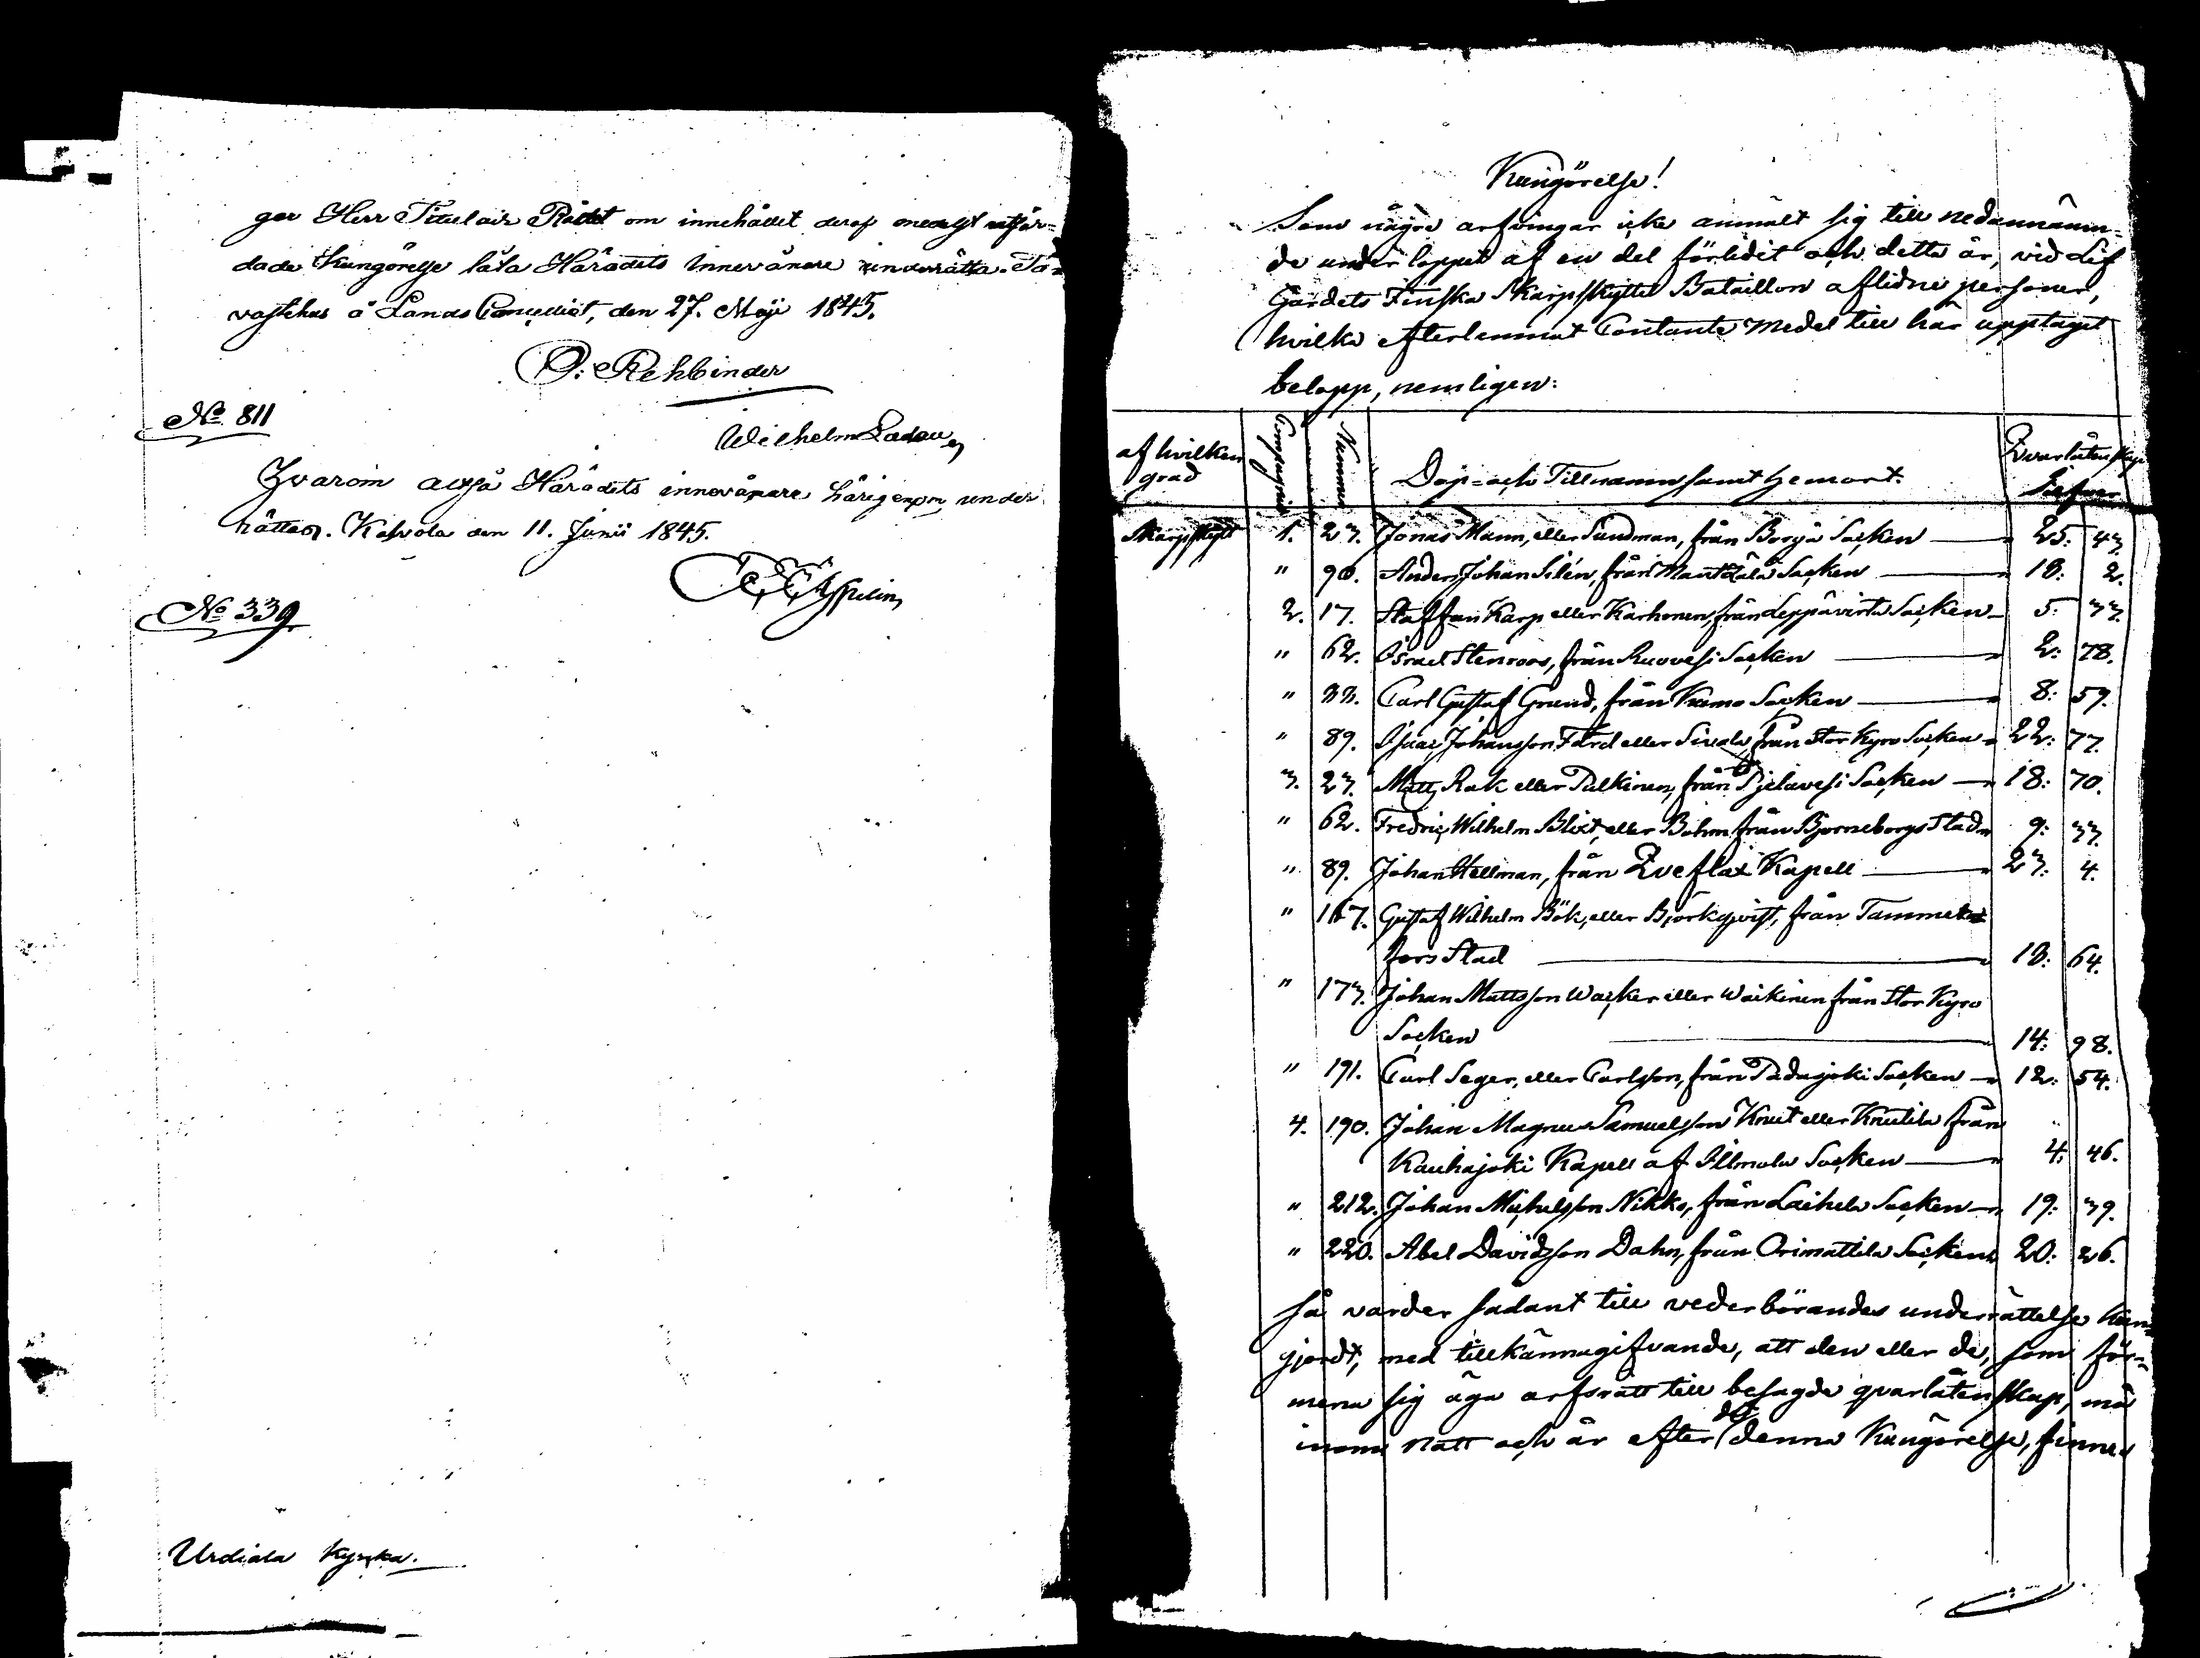 ger Herr Titulair Rådet om innehållet deraf medelst utfär-
dade Kungörelse låta Häradets Innevånare underrätta. Ta-
vastehus å Lands Cancelliet, den 27. Maji 1845.
O: Rehbinder
No 811
Wilhelm
Hvarom altså Häradets innevånare härigenom under
rättas. Kalvola den 11. Junii 1845.
No 339
Urdiala Kyrka.
Kungörelse!
Som någre arfvingar icke anmält sig till nedannämn-
de under loppet af en del förledit och detta år, vid Lif
Gardets Finska Skarpskytte Bataillon aflidne personer,
hvilka efterlemnat Contante Medel till här upptaget
belopp, nemligen:
af hvilken grad Compagnie Nummer Dop- och Tillnamn samt hemort. Qvarlåtenskap Silfver
Skarpskytt 1. 23. Jonas Mann, eller Sundman, från Borgå Socken 25: 43.
" 90. Anders Johan Silén, från Mäntzälä Socken 18: 2.
2. 17. Staffan Karp eller Karhonen, från Leppävirta Socken 5: 33.
" 62. Israel Stenroos, från Ruovesi Socken 2: 78.
" 33. Carl Gustaf Grund, från Kumo Socken 8: 59.
" 89. Isaac Johansson Färd eller Sirola, från Stor Kyro Socken 22: 77.
3. 23. Matts Rak eller Pulkinen, från Pjelavesi Socken 18: 70.
" 62. Fredric Wilhelm Blixt, eller Böhm från Björneborgs Stad 9: 33.
" 89. Johan Hellman, från Qveflax Kapell 23: 4.
" 167. Gustaf Wilhelm Bök, eller Björkqvist, från Tammer-
fors Stad 18: 64.
" 173. Johan Mattsson Wacker eller Waikinen från Stor Kyro
Socken 14: 98.
" 191. Carl Seger, eller Carlsson, från Padasjoki Socken 12: 54.
4. 190. Johan Magnus Samuelsson Knut eller Knutila från
Kauhajoki Kapell af Illmola Socken 4: 46.
" 212. Johan Michelsson Nikko, från Laihela Socken 19: 39.
" 220. Abel Davidsson Dahn, från Orimattila Socken 20: 26.
så varder sådant till vederbörandes underrättelse kun-
gjordt, med tillkännagifvande, att den eller de, som för-
mena sig äga arfsrätt till besagde qvarlåtenskap, må
inom natt och år efter det denna Kungörelse, finnes